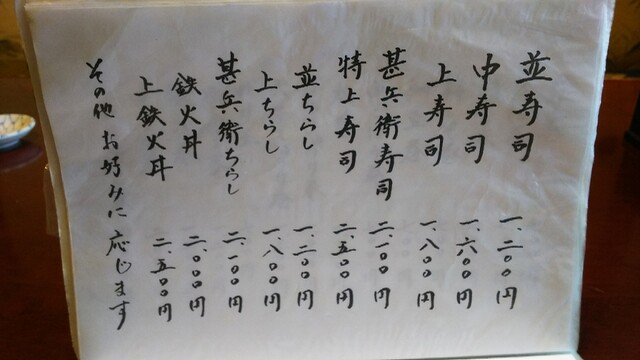 並寿司 一、二〇〇円
中寿司 一、六〇〇円
上寿司 一、八〇〇円
甚兵衛寿司 二、一〇〇円
特上寿司 二、五〇〇円
並ちらし 一、二〇〇円
上ちらし 一、八〇〇円
甚兵衛ちらし 二、一〇〇円
鉄火丼 二、〇〇〇円
上鉄火丼 二、五〇〇円
その他 お好みに応じます